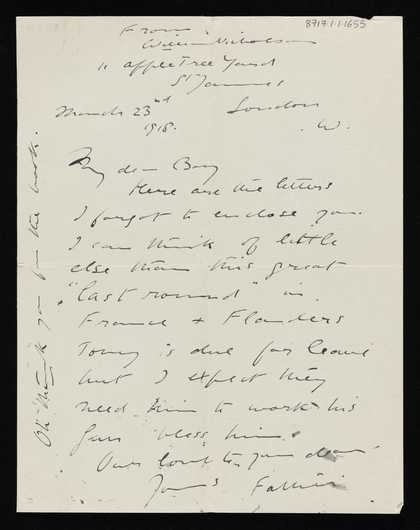 8717.1.1.1655
From
William Nicholson
11 Apple Tree Yard
St James
March 23rd London
1918. W.
My dear Boy
Here are the letters
I forgot to enclose you.
I can think of little
else than this great
"last round" in
France & Flanders
Tony is due for leave
but I expect they
need him to work his
guns bless him.
Our love to you dear
Yours Father
Oh thank you for the book.